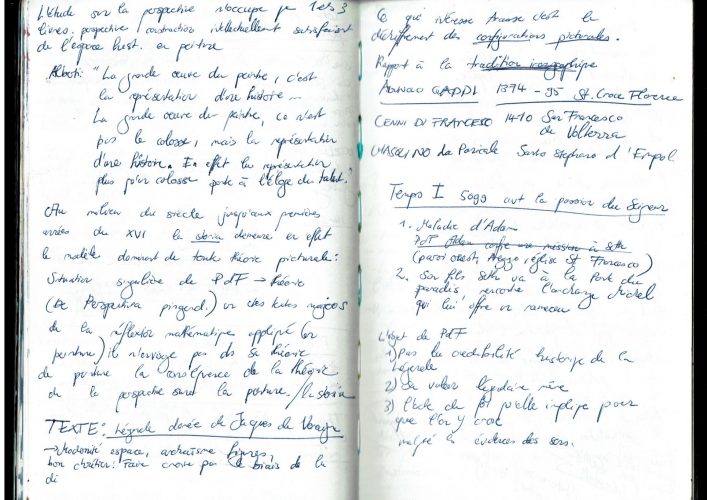 L'étude sur la perspective n'occupe que 1 des 3
livres, perspective construction intellectuellement satisfaisant
de l'espace hist. en peinture
Alberti: "La grande œuvre du peintre, c'est
la représentation d'une histoire...
La grande œuvre du peintre, ce n'est
pas le colosse, mais la représentation
d'une histoire. En effet la représentation
plus qu'un colosse porte à l'éloge du talent."
Au milieu du siècle jusqu'aux premières
années du XVI la storia demeure en effet
le modèle dominant de toute théorie picturale:
Situation singulière de PdF → théorie
(De Perspectiva pingendi) un des textes majeurs
de la réflexion mathématique appliqué (en
peinture) il n'envisage pas ds sa théorie
de peinture la conséquence de la théorie
de la perspective sur la peinture. / la storia
TEXTE: Légende dorée de Jacques de Voragine
→ Modernité espace, archaïsme figures,
bon chrétien: Faire croire par le biais de la
di
Ce qui intéresse c'est le
déchiffrement des configurations picturales.
Rapport à la tradition iconographique
AGNOLO GADDI 1374 - 95 St. Croce Florence
CENNI DI FRANCESCO 1410 San Francesco
de Volterra
MASOLINO da Panicale Santo Stephano d'Empol.
Temps I 5099 avt la passion du Seigneur
1. Maladie d'Adam
PdF Adam confie une mission à Seth
(paroi ouest, Arezzo, église St Francesco)
2. Son fils Seth va à la Porte du
paradis rencontre l'archange Michel
qui lui offre un rameau
L'objet de PdF
1) Pas la crédibilité historique de la
légende
2) Sa valeur légendaire même
3) l'acte de foi qu'elle implique pour
que l'on y croit
malgré les évidences des sens.